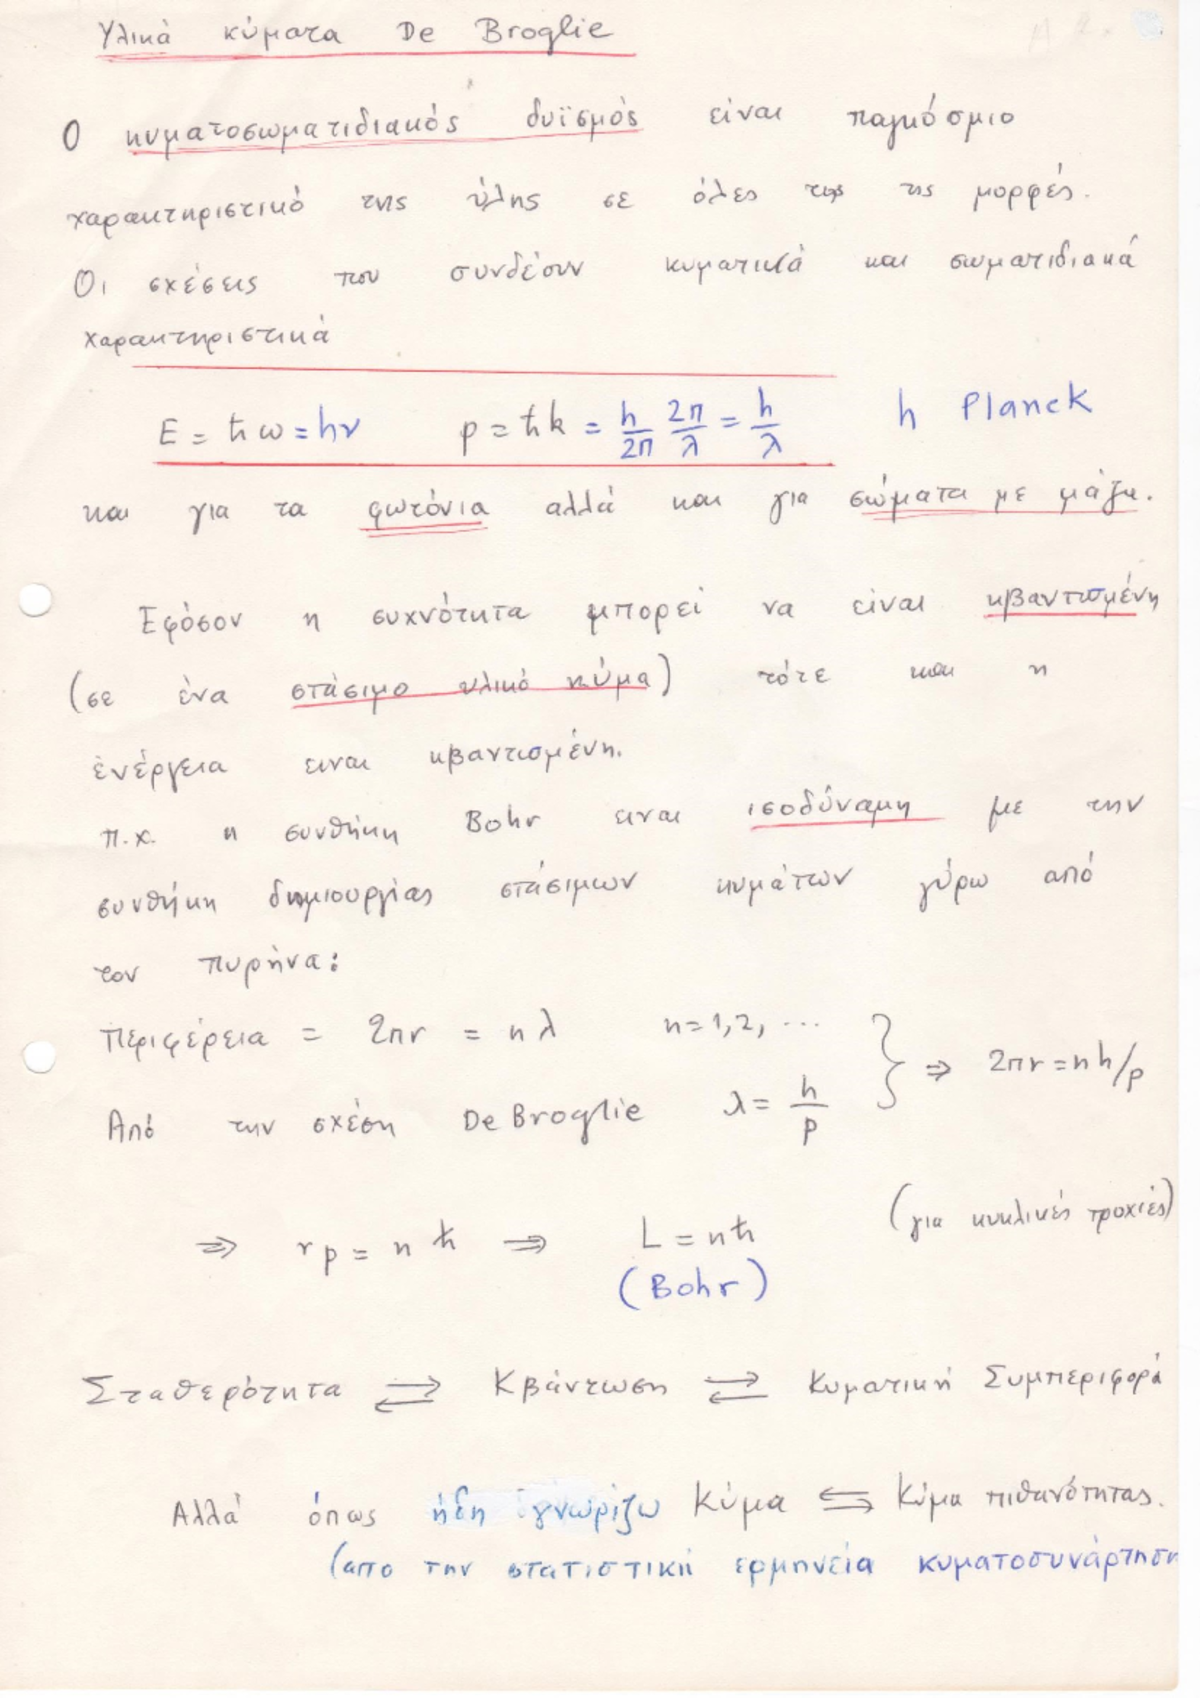 Υλικά κύματα De Broglie
Ο κυματοσωματιδιακός δυϊσμός είναι παγκόσμιο
χαρακτηριστικό της ύλης σε όλες της μορφές.
Οι σχέσεις που συνδέουν κυματικά και σωματιδιακά
χαρακτηριστικά
E = ħω = hν p = ħk = h/2π 2π/λ = h/λ h Planck
και για τα φωτόνια αλλά και για σώματα με μάζα.
Εφόσον η συχνότητα μπορεί να είναι κβαντισμένη
(σε ένα στάσιμο υλικό κύμα) τότε και η
ενέργεια ειναι κβαντισμένη.
π.χ. η συνθήκη Bohr ειναι ισοδύναμη με την
συνθήκη δημιουργίας στάσιμων κυμάτων γύρω από
τον πυρήνα:
Περιφέρεια = 2πr = nλ n=1,2, ...
} ⇒ 2πr = nh/p
Από την σχέση De Broglie λ = h/p
(για κυκλικές τροχιές)
⇒ rp = nħ ⇒ L = nħ
(Bohr)
Σταθερότητα ⇄ Κβάντωση ⇄ Κυματική Συμπεριφορά
Αλλά όπως ήδη γνωρίζω Κύμα ⇆ Κύμα πιθανότητας.
(απο την στατιστική ερμηνεία κυματοσυνάρτηση